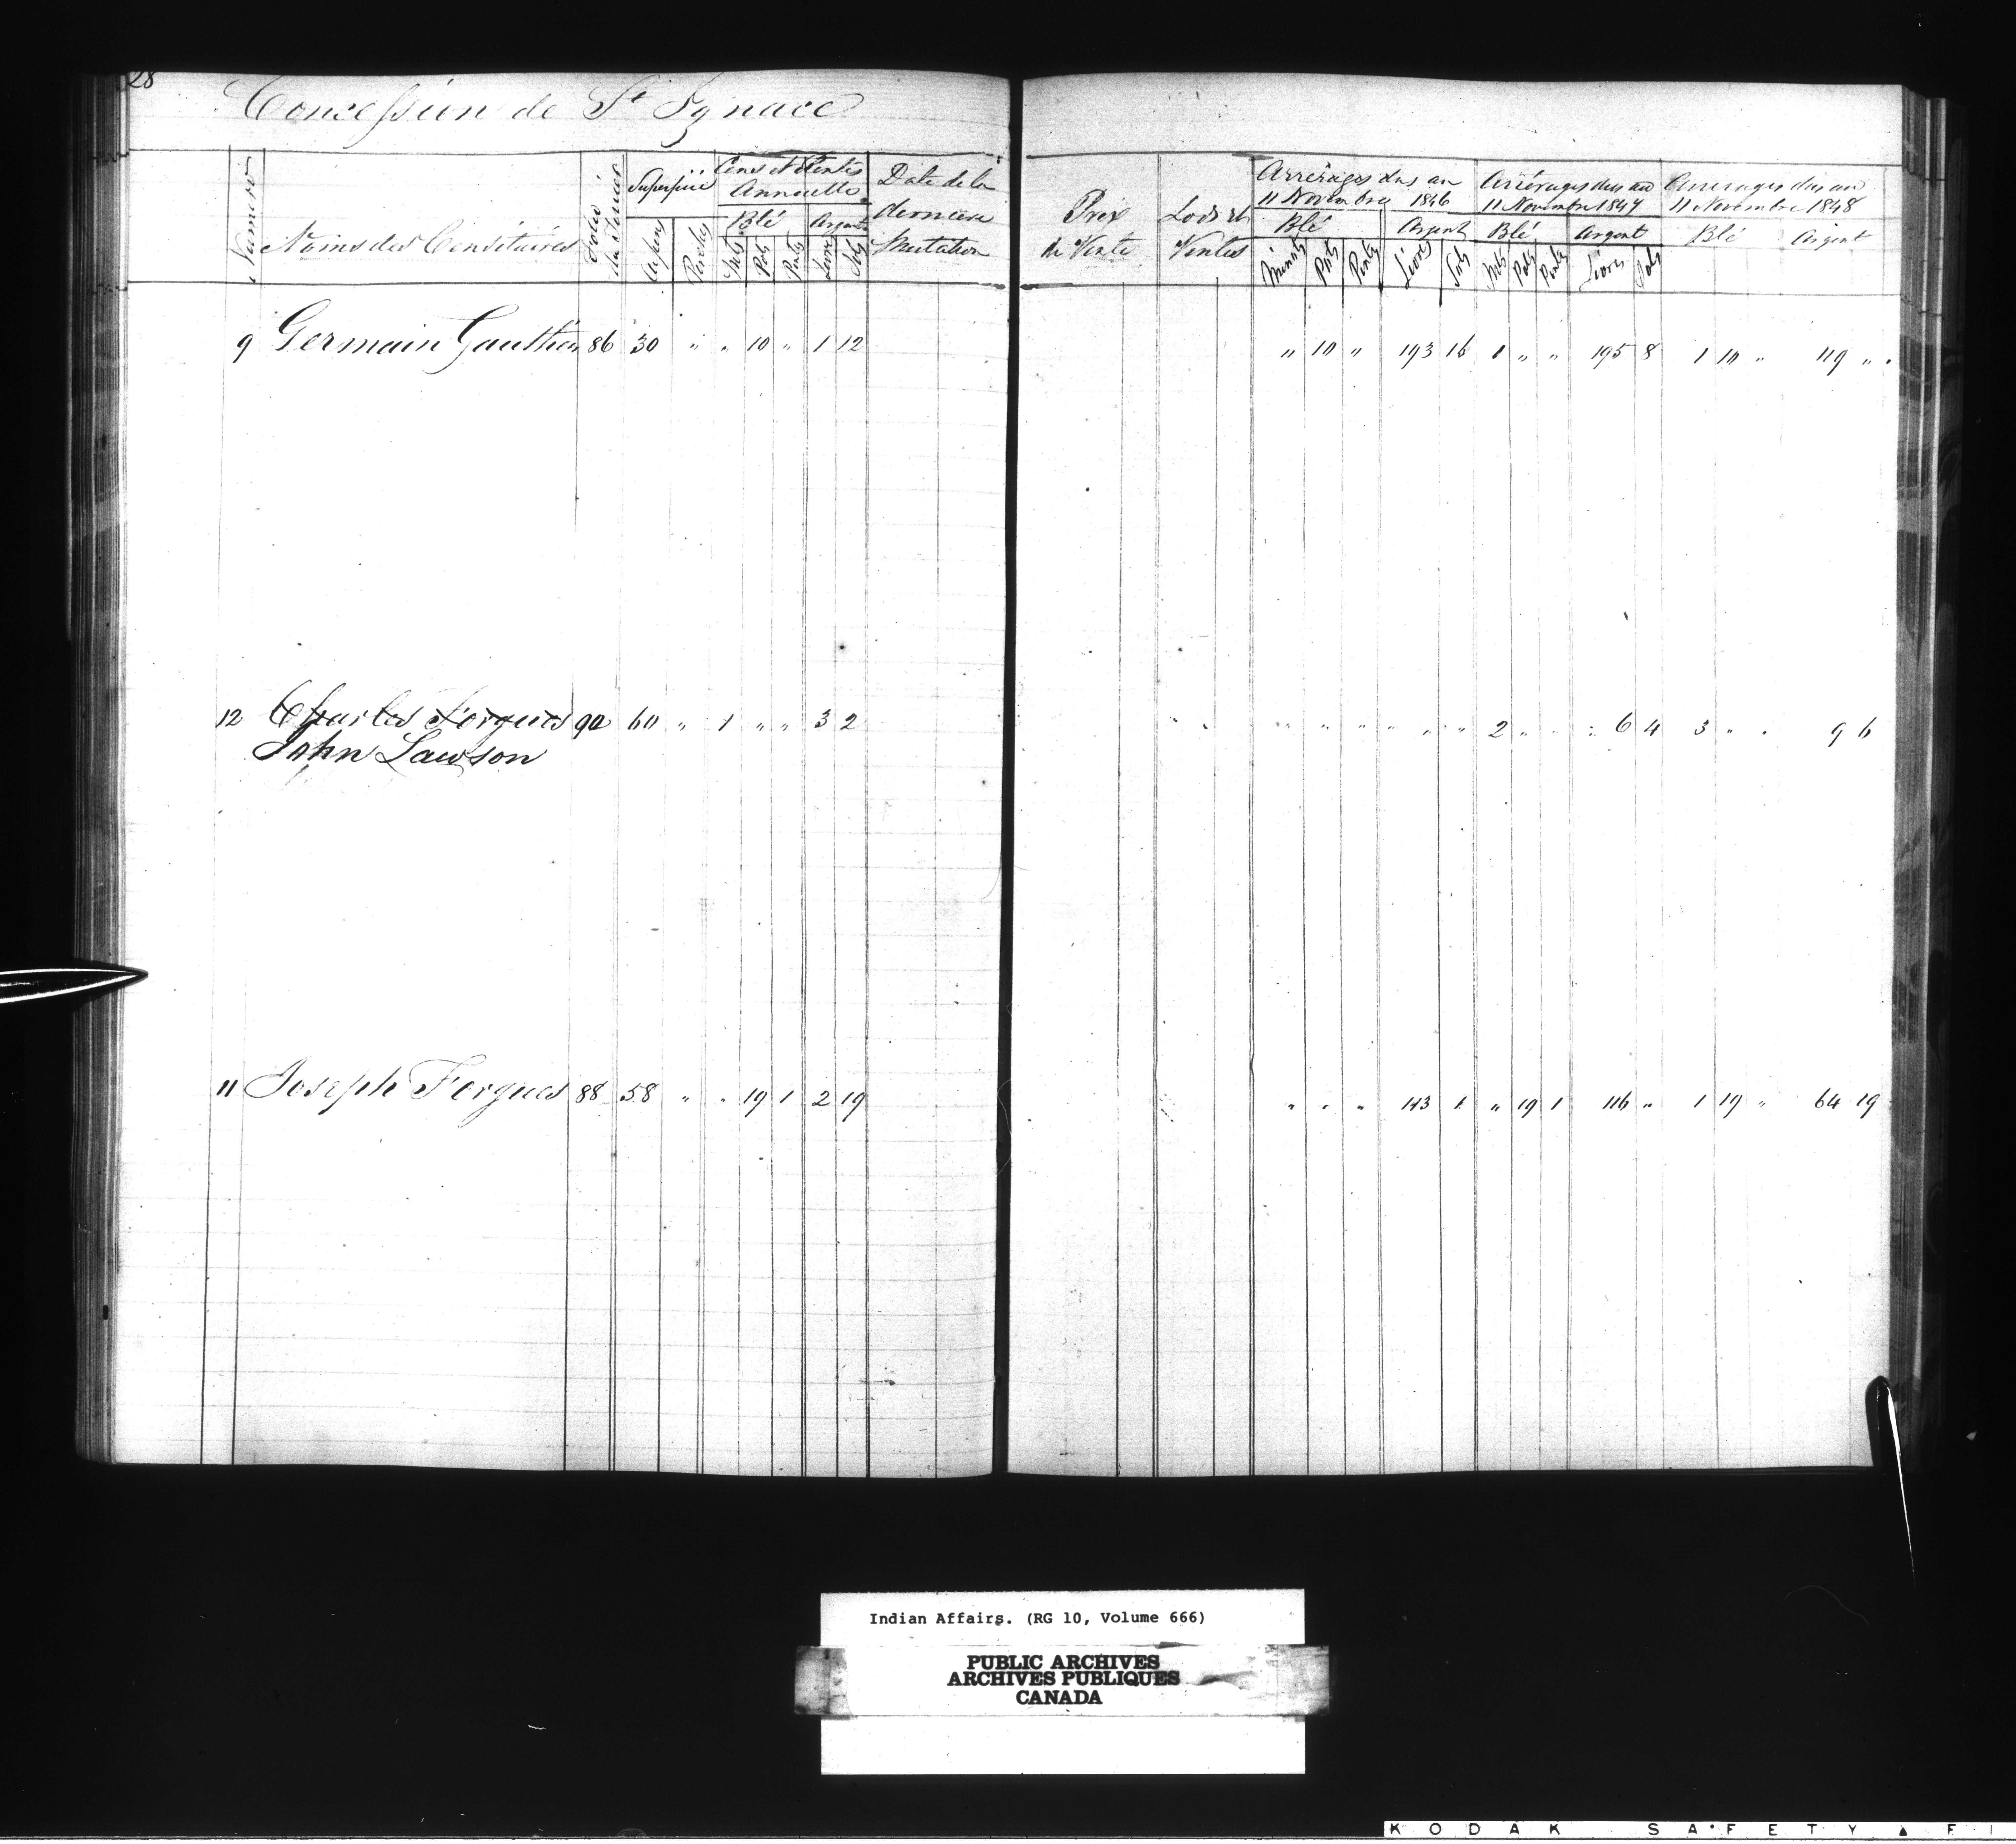 28
Concession de St Ignace
Numero
Noms des Censitaires
Folio du Terrier
Superficie
Arpens
Perches
Cens et Rentes Annuelles
Blé
Argent
Mts
Pots
Pintes
Livres
Sols
Date de la dernière Mutation
Prix de Vente
Lods et Ventes
Arrérages dus au 11 Novembre 1846
Blé
Argent
Minots
Pots
Pintes
Livres
Sols
Arrérages dus au 11 Novembre 1847
Blé
Argent
Mts
Pots
Pintes
Livres
Sols
Arrerages dus au 11 Novembre 1848
Blé
Argent
9 Germain Gauthier 86 30 " " 10 " 1 12 " 10 " 193 16 1 " " 195 8 1 10 " 119 "
12 Charles Fergues 90 60 " 1 " " 3 2 " " " " " 2 " " 6 4 3 " " 9 6
John Lawson
11 Joseph Fergues 88 58 " " 19 1 2 19 " " " 113 1 " 19 1 116 " 1 19 " 64 19
Indian Affairs. (RG 10, Volume 666)
PUBLIC ARCHIVES
ARCHIVES PUBLIQUES
CANADA
KODAK SAFETY ▲ FI